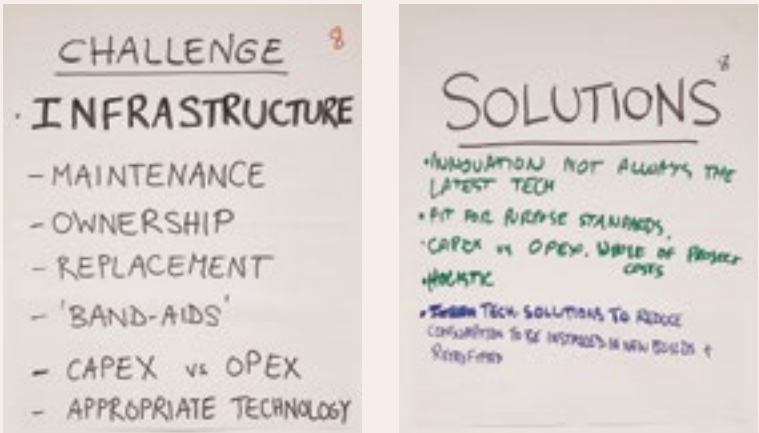 CHALLENGE 8
· INFRASTRUCTURE
- MAINTENANCE
- OWNERSHIP
- REPLACEMENT
- 'BAND-AIDS'
- CAPEX vs OPEX
- APPROPRIATE TECHNOLOGY
SOLUTIONS 8
• INNOVATION NOT ALWAYS THE
LATEST TECH
• FIT FOR PURPOSE STANDARDS.
• CAPEX vs OPEX. WHOLE OF PROJECT
COSTS
• HOLISTIC
• TECH SOLUTIONS TO REDUCE
CONSUMPTION TO BE INSTALLED IN NEW BUILDS +
RETROFITTED